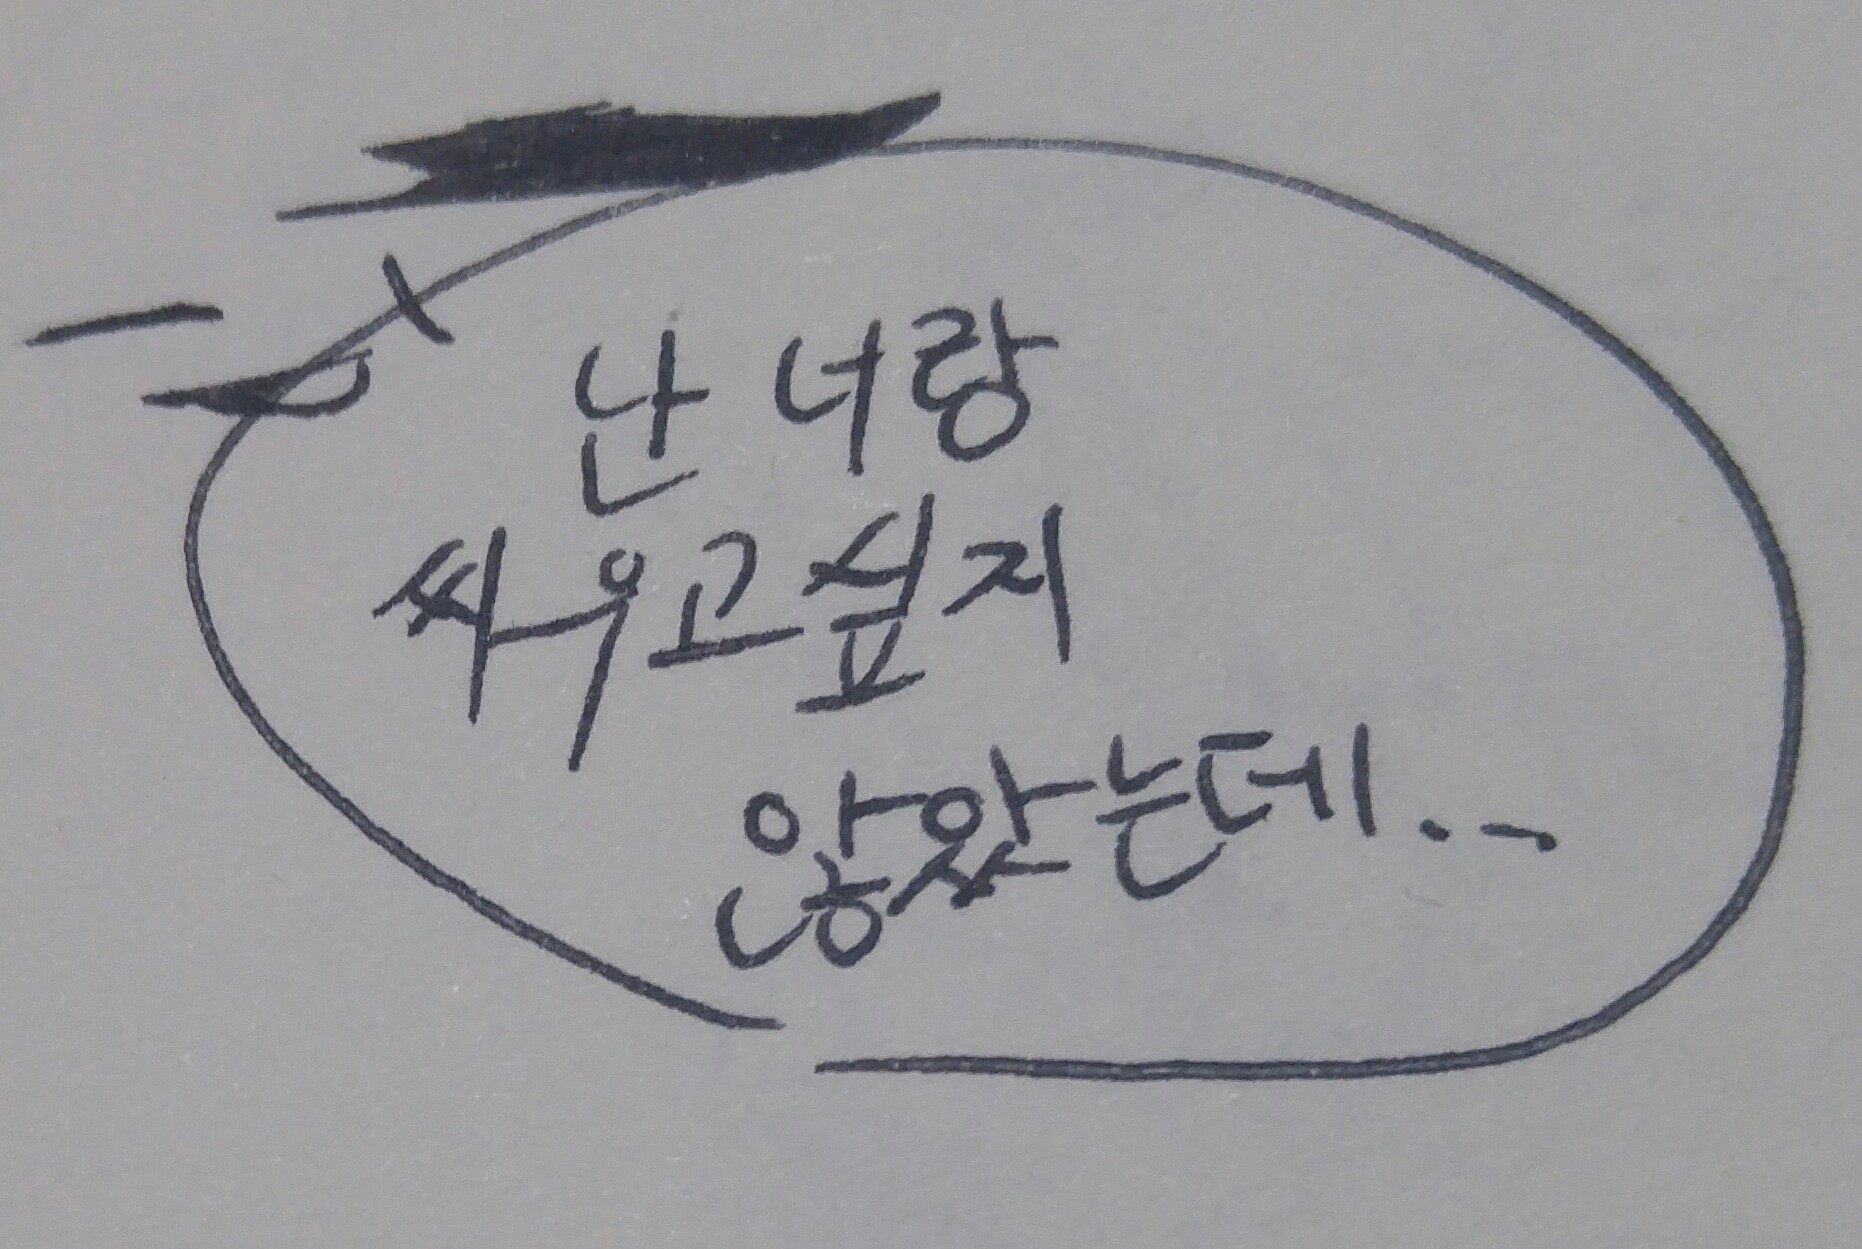 난 너랑
싸우고싶지
않았는데...